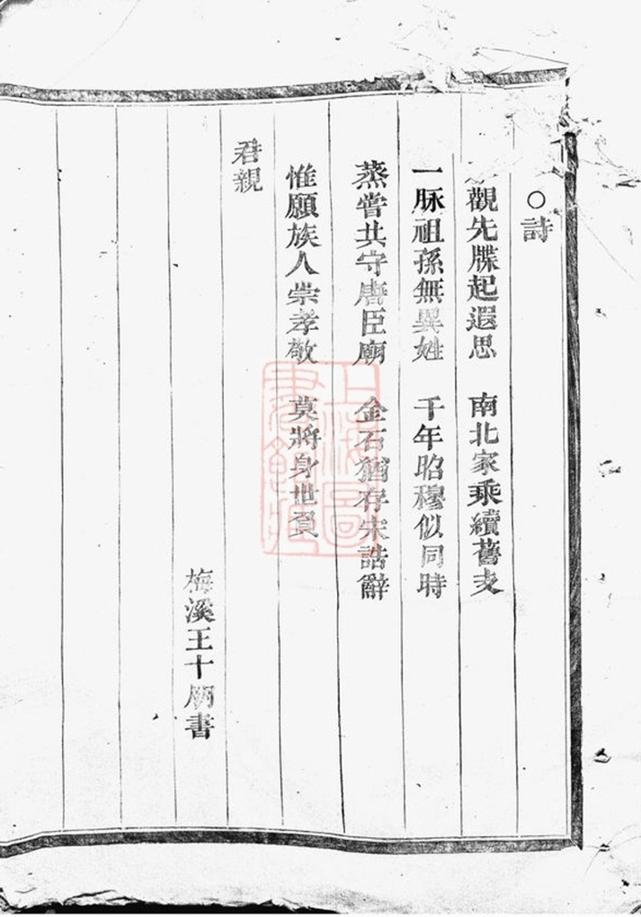 ○詩
觀先牒起遐思　南北家乘續舊支
一脉祖孫無異姓　千年昭穆似同時
蒸嘗共守唐臣廟　金石猶存宋誥辭
惟願族人崇孝敬　莫將身世負
君親
梅溪王十朋書
上海圖書館藏